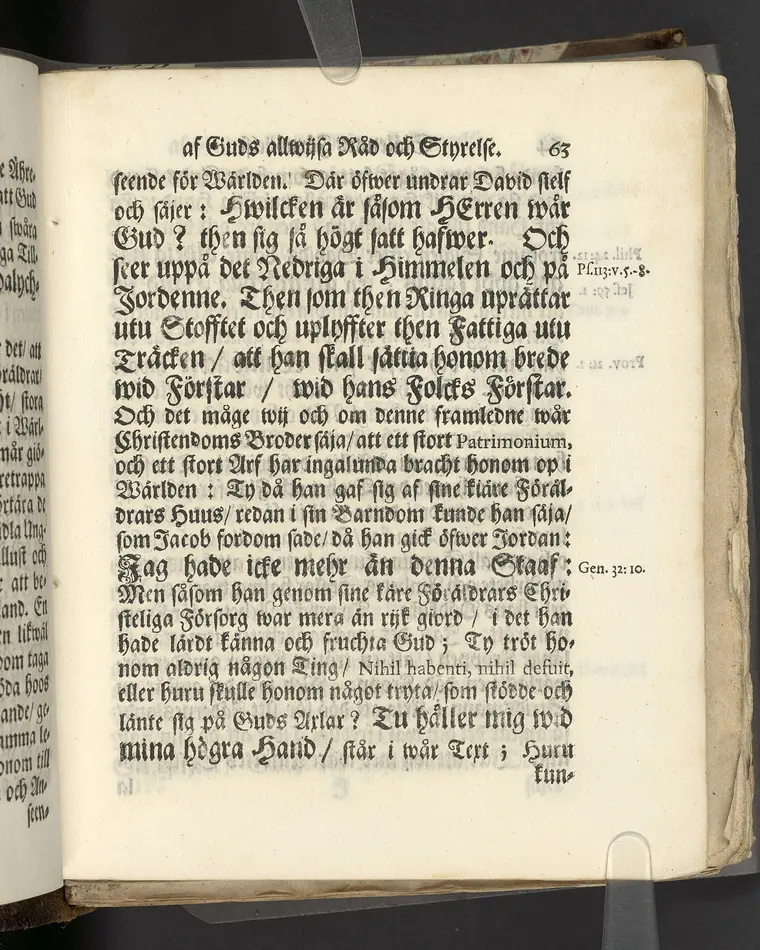 af Guds allwijsa Råd och Styrelse. 63
seende för Wärlden. Där öfwer undrar David sielf
och säjer : Hwilcken är såsom HErren wår
Gud ? then sig så högt satt hafwer. Och
seer uppå det Nedriga i Himmelen och på
Ps. 113: v. 5.-8.
Jordenne. Then som then Ringa uprättar
utu Stofftet och uplyffter then Fattiga utu
Träcken / att han skall sättia honom brede
wid Förstar / wid hans Folcks Förstar.
Och det måge wij och om denne framledne wår
Christendoms Broder säja/ att ett stort Patrimonium,
och ett stort Arf har ingalunda bracht honom op i
Wärlden : Ty då han gaf sig af sine kiäre Föräl-
drars Huus/ redan i sin Barndom kunde han säja/
som Jacob fordom sade/ då han gick öfwer Jordan :
Jag hade icke mehr än denna Staaf :
Gen. 32: 10.
Men såsom han genom sine käre Föräldrars Chri-
steliga Försorg war mera än rijk giord / i det han
hade lärdt känna och fruchta Gud ; Ty tröt ho-
nom aldrig någon Ting/ Nihil habenti, nihil defuit,
eller huru skulle honom något tryta/ som stödde och
länte sig på Guds Axlar ? Tu håller mig wid
mina högra Hand / står i wår Text ; Huru
kun-
att Gud
swåra
ga Till-
det/ att
stora
i Wärl-
och
att be-
land. En
likwäl
dom taga
hoos
ande/ ge-
amma le-
onom till
och An-
seen-